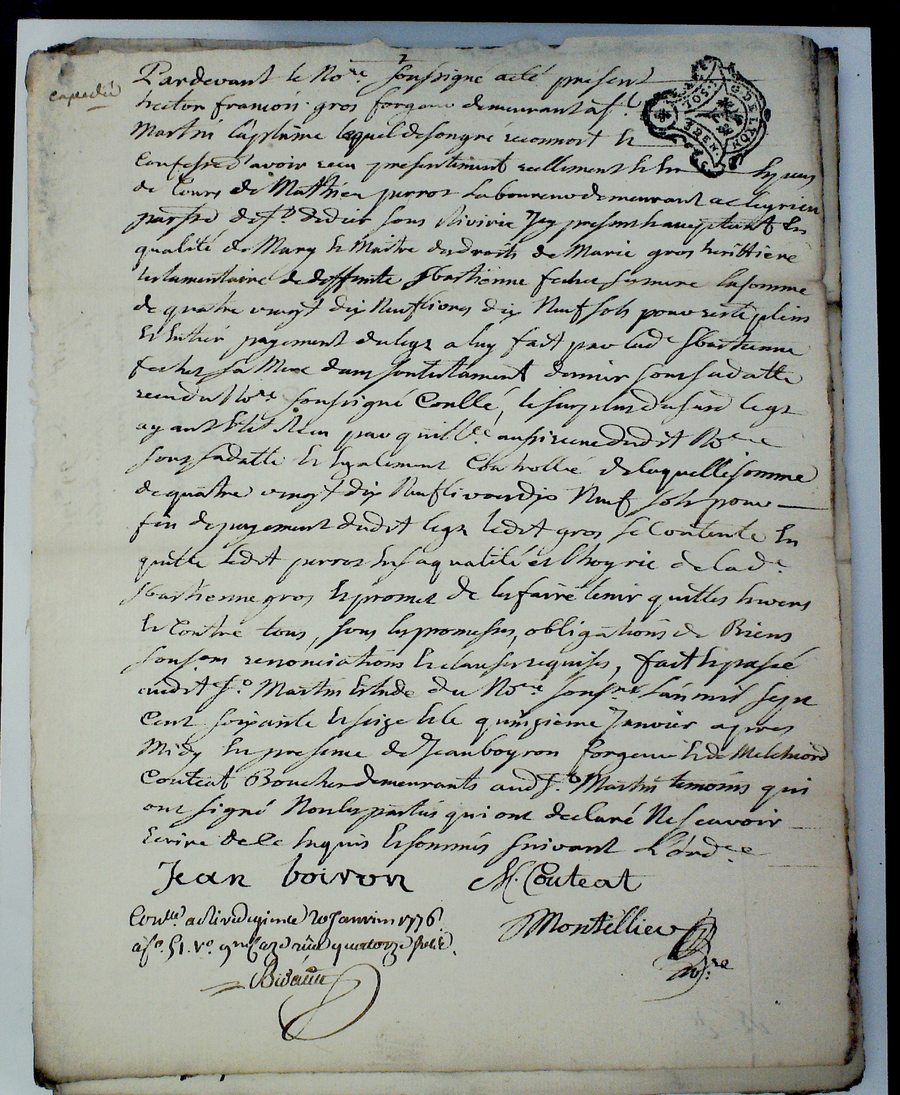 expedié
Pardevant le No.re soussigné a eté present
hector françois gros forgeur demeurant a S.t
Martin laplaine lequel de son gré reconnoit et
confesse d'avoir recu presentement reellement et en
de cours de Mathieu perrot laboureur demeurant a
parsse de S.t didier sous Rivirie Icy present acceptant en
qualité de Mary et Maitre des droits de Marie gros herittiere
testamentaire de deffunte sbastienne fecher sa mere la somme
de quatre vingt dix Neuf livres dix Neuf sols pour reste plein
et entier payement du legz a luy fait par lad.e sbastienne
fecher sa Mere dans son testament dernier sous sa datte
recu dud No.re soussigné Conllé, le surplus dususd legz
ayant eté recu par quitt.ce aussi recue dudit No.re
sous sa datte et egalement Controllée de laquelle somme
de quatre vingt dix Neuf livres dix Neuf sols pour
fin de payement dudit legz ledit gros se Contente en
quitte ledit perrot en sa qualité et l'hoyrie de lad.e
sbastienne gros et promet de les faire tenir quittes envers
et Contre tous, sous les promesses, obligations de Biens
renonciations et clauses requises, fait et passé
audit S.t Martin Etude du No.re souss.né L'an mil sept
Cent soixante et seize et le quinzieme Janvier apres
Midy en presence de Jean boyron forgeur et de Melchiord
Couteat Boucher demeurants aud S.t Martin temoins qui
ont signé Non les parties qui ont declaré Ne scavoir
Ecrire de ce Enquis et sommés suivant L'ord.ce
Jean boiron M. Couteat
Con.llé a Rivedegier le 20 Janvier 1776
a f.o 51 v.o recu quatorze sols
Montellier
No.re